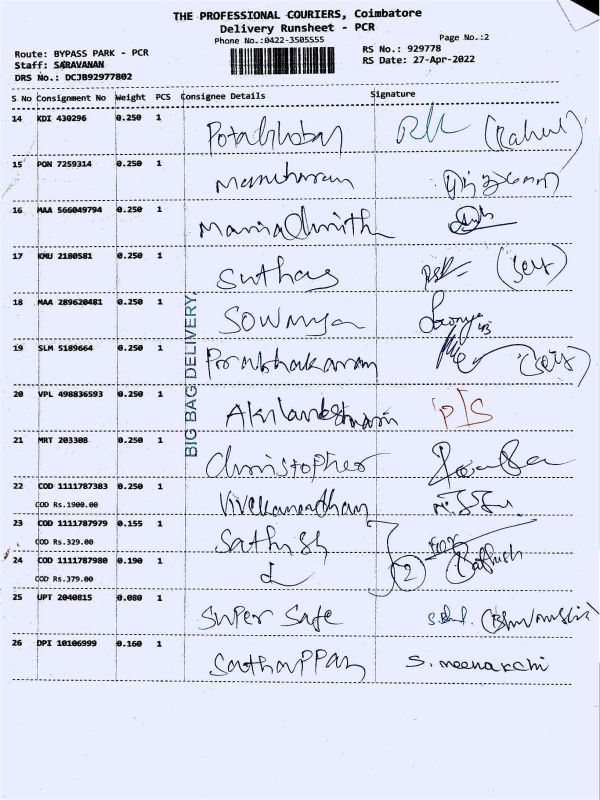 THE PROFESSIONAL COURIERS, Coimbatore
Delivery Runsheet - PCR
Phone No.:0422-3505555
Page No.:2
Route: BYPASS PARK - PCR
RS No.: 929778
Staff: SARAVANAN
RS Date: 27-Apr-2022
DRS No.: DCJB92977802
S No Consignment No Weight PCS Consignee Details Signature
14 KDI 430296 0.250 1 (Rahul)
15 PON 7259314 0.250 1 Manoharan
16 MAA 566049794 0.250 1
17 KMU 2180581 0.250 1 Suthas (Self)
18 MAA 289620481 0.250 1 Sowmya Sowmya
19 SLM 5189664 0.250 1 Prabhakaran (self)
20 VPL 498836593 0.250 1
21 MRT 203308 0.250 1 Christopher
22 COD 1111787383 0.250 1 Vivekanandhan
COD Rs.1900.00
23 COD 1111787979 0.155 1 Sathish
COD Rs.329.00
24 COD 1111787980 0.190 1 2 Sathish
COD Rs.379.00
25 UPT 2040815 0.080 1 Super Safe
26 DPI 10106999 0.160 1 Sathappan S. meenakchi
BIG BAG DELIVERY.